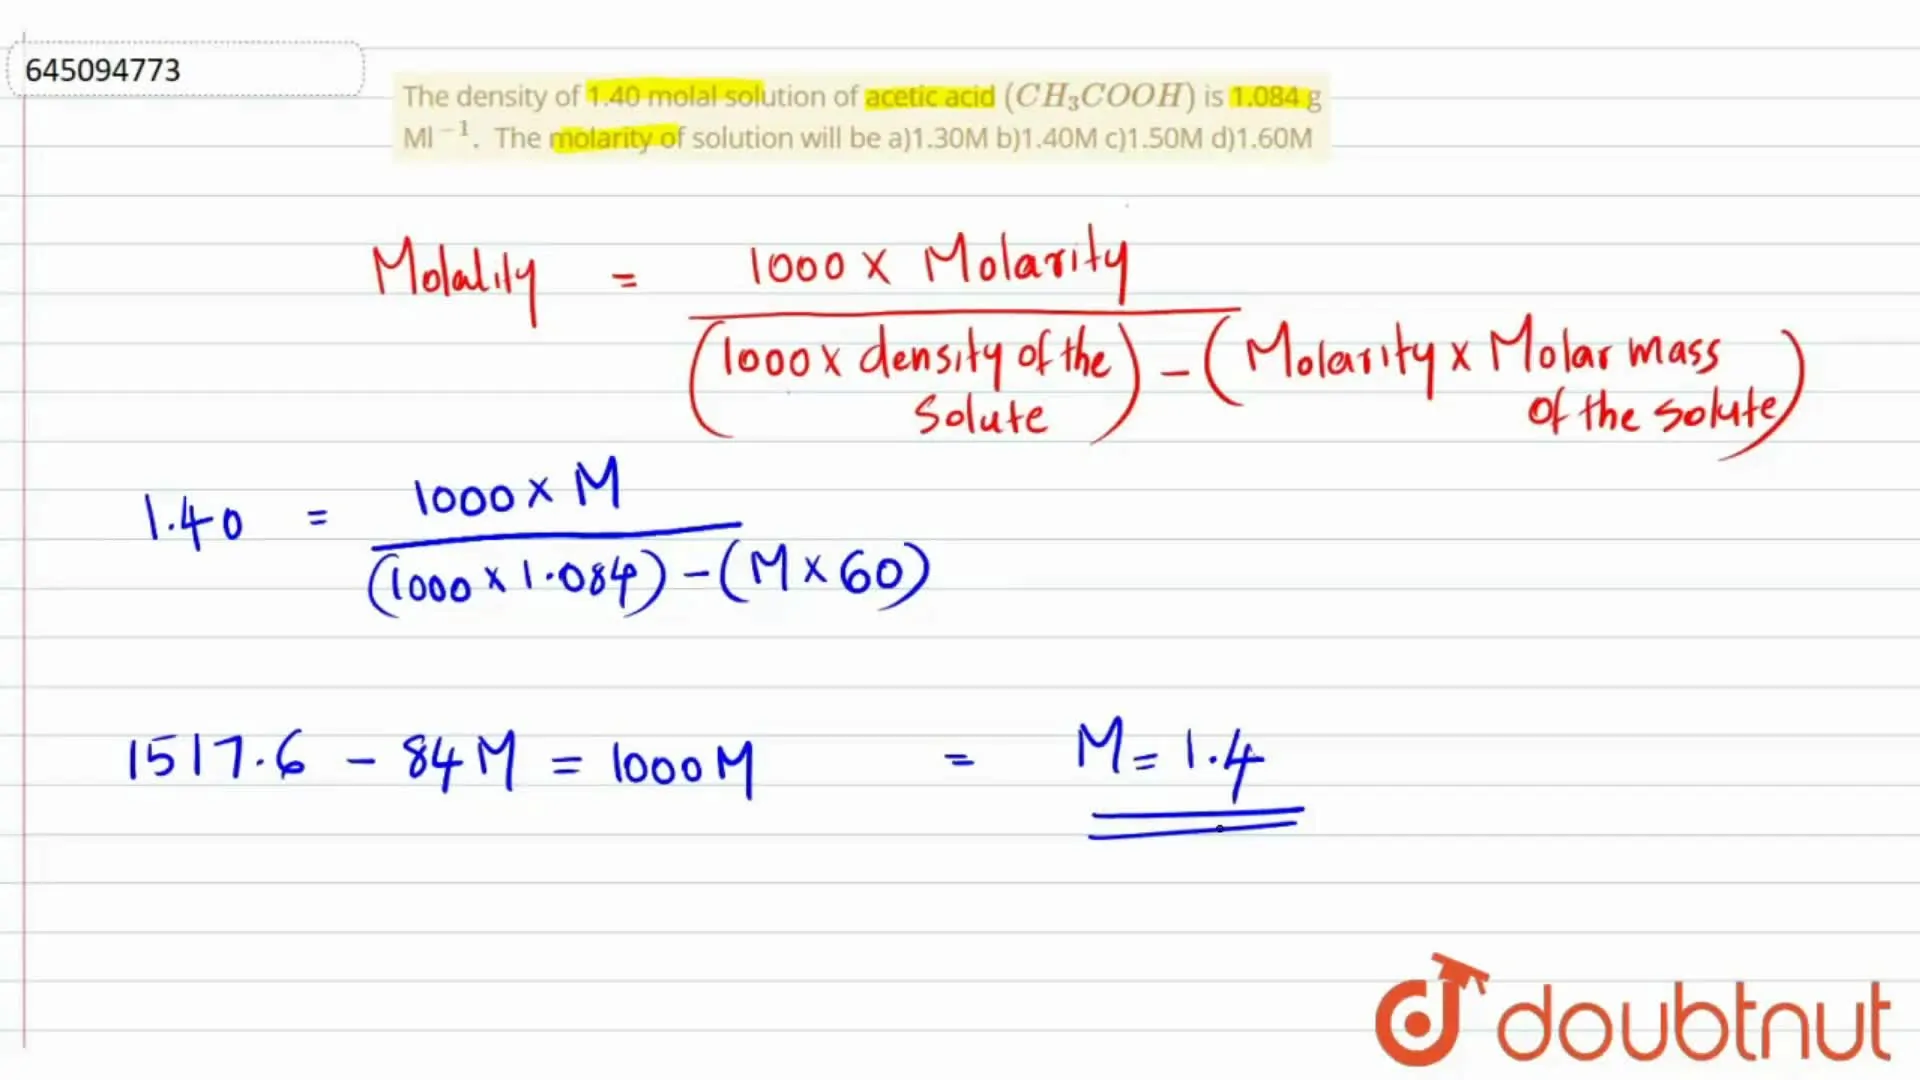 645094773
The density of 1.40 molal solution of acetic acid (CH₃COOH) is 1.084 g
Ml⁻¹. The molarity of solution will be a)1.30M b)1.40M c)1.50M d)1.60M
Molality = 1000 x Molarity
(1000 x density of the solute) - (Molarity x Molar mass of the solute)
1.40 = 1000 x M
(1000 x 1.084) - (M x 60)
1517.6 - 84M = 1000M = M = 1.4
doubtnut